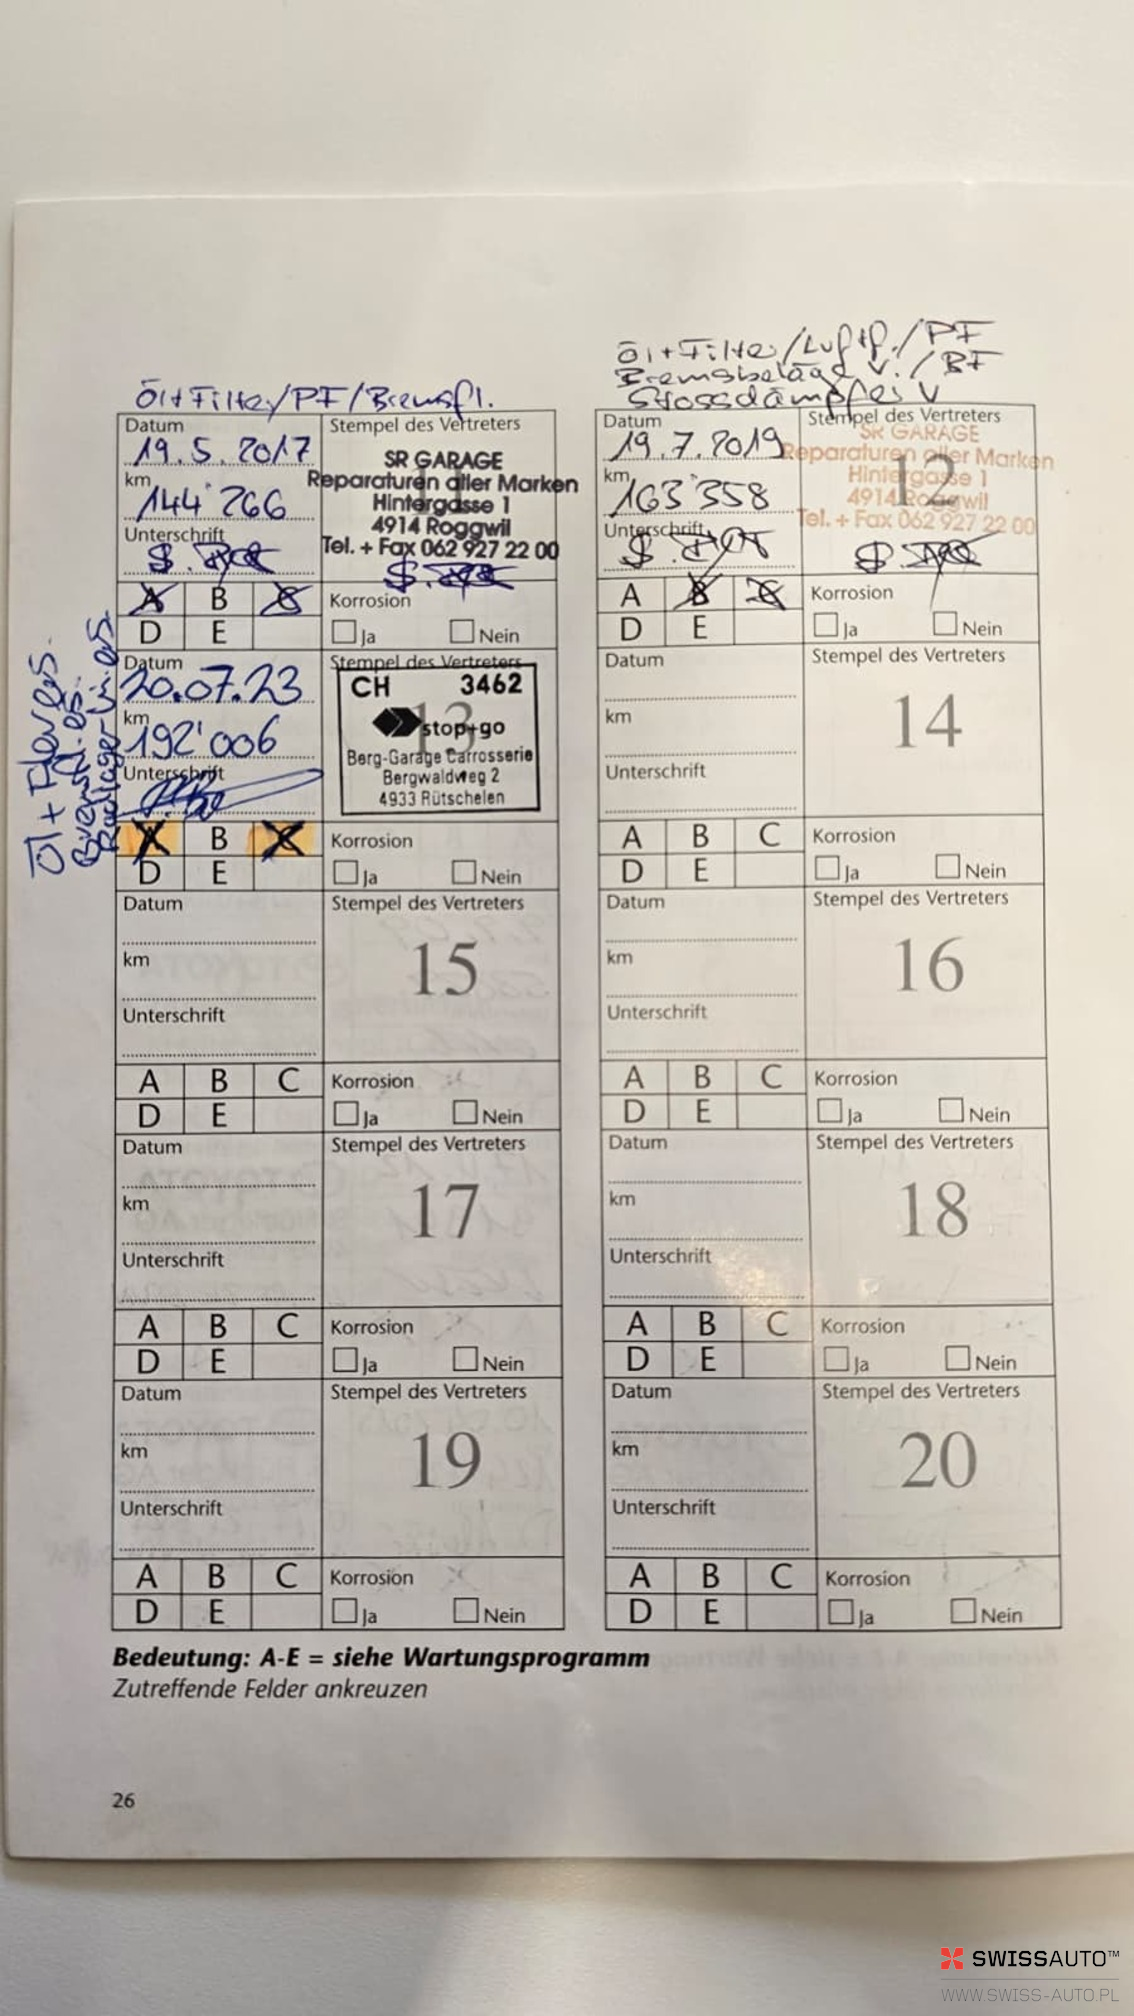 Öl+Filter/PF/Bremsfl.
Datum
19.5.2017
km
144'266
Unterschrift
Stempel des Vertreters
11
SR GARAGE
Reparaturen aller Marken
Hintergasse 1
4914 Roggwil
Tel. + Fax 062 927 22 00
A B C
D E
Korrosion
Ja Nein
Öl+Filter/Luftf./PF
Bremsbeläge v./BF
Stossdämpfer v
Datum
19.7.2019
km
163'358
Unterschrift
Stempel des Vertreters
12
SR GARAGE
Reparaturen aller Marken
Hintergasse 1
4914 Roggwil
Tel. + Fax 062 927 22 00
A B
D E
Korrosion
Ja Nein
Öl +
Datum
20.07.23
km
192'006
Unterschrift
Stempel des Vertreters
13
CH 3462
stop+go
Berg-Garage Carrosserie
Bergwaldweg 2
4933 Rütschelen
A B
D E
Korrosion
Ja Nein
Datum
km
Unterschrift
Stempel des Vertreters
14
A B C
D E
Korrosion
Ja Nein
Datum
km
Unterschrift
Stempel des Vertreters
15
A B C
D E
Korrosion
Ja Nein
Datum
km
Unterschrift
Stempel des Vertreters
16
A B C
D E
Korrosion
Ja Nein
Datum
km
Unterschrift
Stempel des Vertreters
17
A B C
D E
Korrosion
Ja Nein
Datum
km
Unterschrift
Stempel des Vertreters
18
A B C
D E
Korrosion
Ja Nein
Datum
km
Unterschrift
Stempel des Vertreters
19
A B C
D E
Korrosion
Ja Nein
Datum
km
Unterschrift
Stempel des Vertreters
20
A B C
D E
Korrosion
Ja Nein
Bedeutung: A-E = siehe Wartungsprogramm
Zutreffende Felder ankreuzen
26
SWISSAUTO™
WWW.SWISS-AUTO.PL